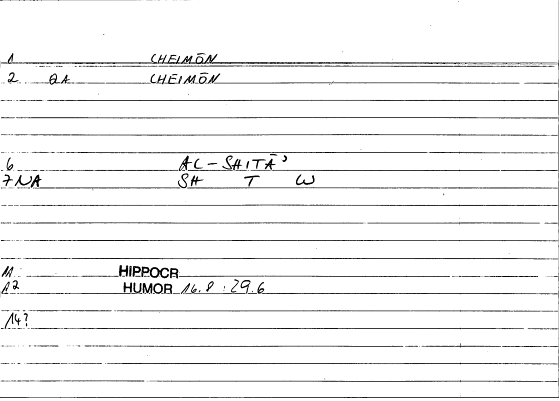 1 CHEIMŌN
2 QA CHEIMŌN
6 AL-SHITĀ'
7 NA SH T W
11 HIPPOCR
12 HUMOR 16.8 . 29.6
14?